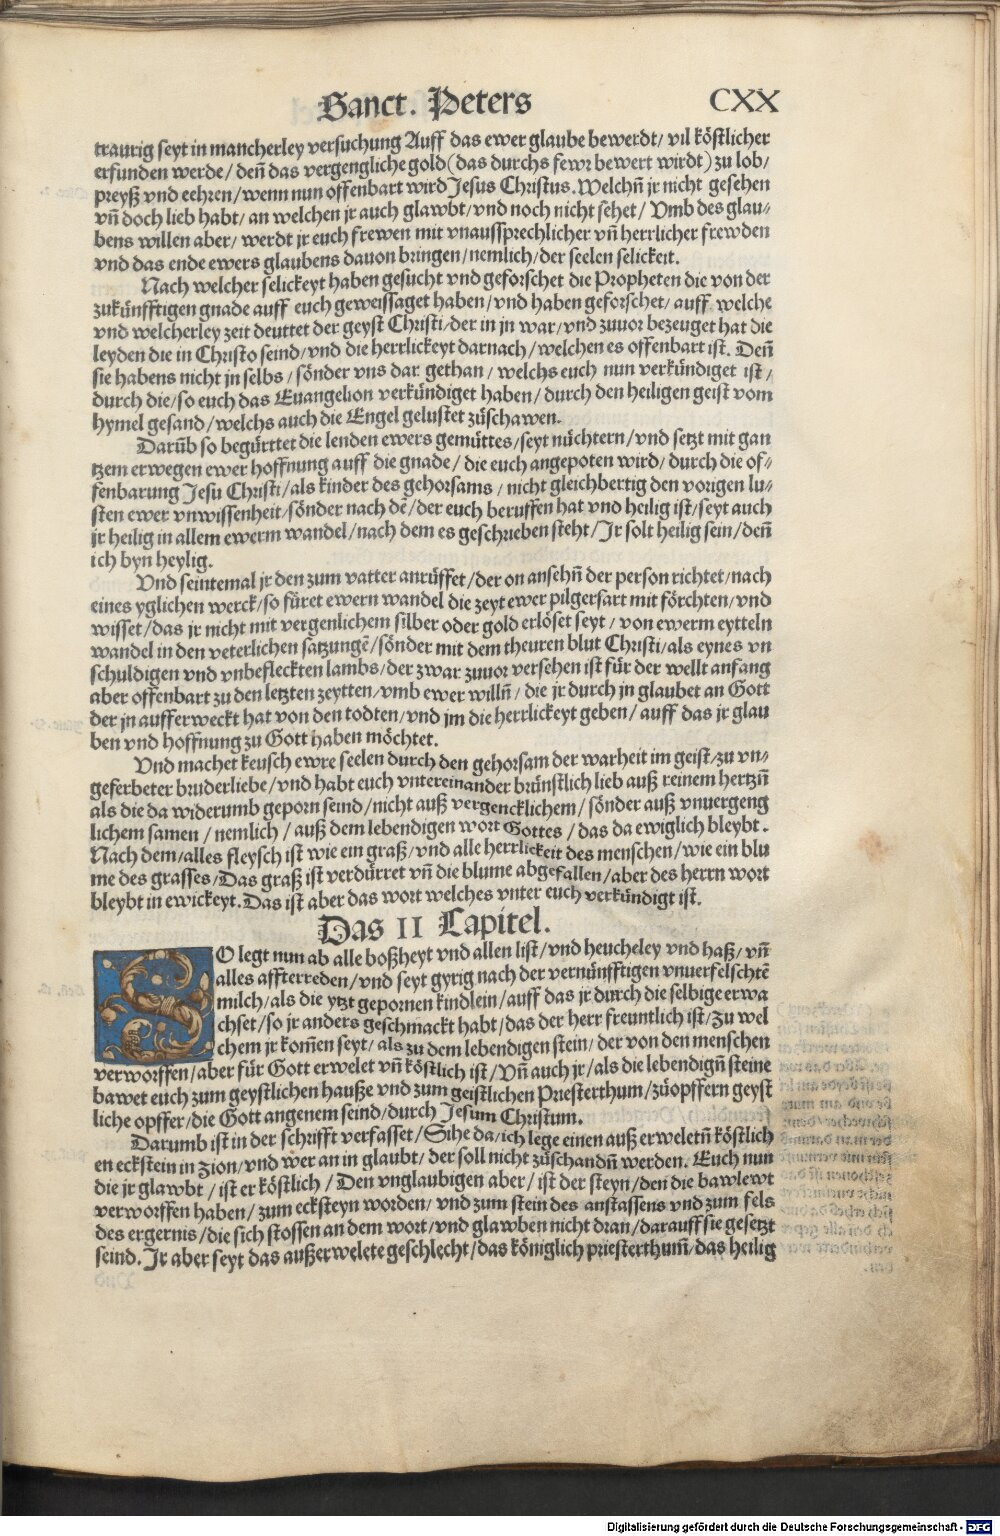 Sanct. Peters CXX
traurig seyt in mancherley versuchung Auff das ewer glaube bewerdt/ vil köstlicher
erfunden werde/ deñ das vergengliche gold (das durchs fewr bewert wirdt) zu lob/
preyß vnd eehren/ wenn nun offenbart wird Jesus Christus. Welchñ jr nicht gesehen
vñ doch lieb habt/ an welchen jr auch glawbt/ vnd noch nicht sehet/ Vmb des glau-
bens willen aber/ werdt jr euch frewen mit vnaussprechlicher vñ herrlicher frewden
vnd das ende ewers glaubens dauon bringen/ nemlich/ der seelen selickeit.
Nach welcher selickeyt haben gesucht vnd geforschet die Propheten die von der
zukünfftigen gnade auff euch geweissaget haben/ vnd haben geforschet/ auff welche
vnd welcherley zeit deuttet der geyst Christi/ der in jn war/ vnd zuuor bezeuget hat die
leyden die in Christo seind/ vnd die herrlickeyt darnach/ welchen es offenbart ist. Deñ
sie habens nicht jn selbs/ sönder vns dar gethan/ welchs euch nun verkündiget ist/
durch die/ so euch das Euangelion verkündiget haben/ durch den heiligen geist vom
hymel gesand/ welchs auch die Engel gelustet züschawen.
Darüb so begürttet die lenden ewers gemüttes/ seyt nüchtern/ vnd setzt mit gan
tzem erwegen ewer hoffnung auff die gnade/ die euch angepoten wird/ durch die of-
fenbarung Jesu Christi/ als kinder des gehorsams/ nicht gleichbertig den vorigen lu-
sten ewer vnwissenheit/ sönder nach dẽ/ der euch beruffen hat vnd heilig ist/ seyt auch
jr heilig in allem ewerm wandel/ nach dem es geschrieben steht/ Jr solt heilig sein/ deñ
ich byn heylig.
Vnd seintemal jr den zum vatter anrüffet/ der on ansehñ der person richtet/ nach
eines yglichen werck/ so füret ewern wandel die zeyt ewer pilgerfart mit förchten/ vnd
wisset/ das jr nicht mit vergenlichem silber oder gold erlöset seyt/ von ewerm eytteln
wandel in den veterlichen satzungẽ/ sönder mit dem theuren blut Christi/ als eynes vn
schuldigen vnd vnbefleckten lambs/ der zwar zuuor versehen ist für der wellt anfang
aber offenbart zu den letzten zeytten/ vmb ewer willñ/ die jr durch jn glaubet an Gott
der jn aufferweckt hat von den todten/ vnd jm die herrlickeyt geben/ auff das jr glau
ben vnd hoffnung zu Gott haben möchtet.
Vnd machet keusch ewre seelen durch den gehorsam der warheit im geist/ zu vn-
geferbeter bruderliebe/ vnd habt euch vntereinander brünstlich lieb auß reinem hertzñ
als die da widerumb geporn seind/ nicht auß vergencklichem/ sönder auß vnuergeng
lichem samen/ nemlich/ auß dem lebendigen wort Gottes/ das da ewiglich bleybt.
Nach dem/ alles fleysch ist wie ein graß/ vnd alle herrlickeit des menschen/ wie ein blu
me des grasses/ Das graß ist verdürret vñ die blume abgefallen/ aber des herrn wort
bleybt in ewickeyt. Das ist aber das wort welches vnter euch verkündigt ist.
Das II Capitel.
SO legt nun ab alle boßheyt vnd allen list/ vnd heucheley vnd haß/ vñ
alles affterreden/ vnd seyt gyrig nach der vernünfftigen vnuerfelschtẽ
milch/ als die ytzt gepornen kindlein/ auff das jr durch die selbige erwa
chset/ so jr anders geschmackt habt/ das der herr freuntlich ist/ zu wel
chem jr kom̃en seyt/ als zu dem lebendigen stein/ der von den menschen
verworffen/ aber für Gott erwelet vñ köstlich ist/ Vñ auch jr/ als die lebendigñ steine
bawet euch zum geystlichen hauße vnd zum geistlichen Priesterthum/ züopffern geyst
liche opffer/ die Gott angenem seind/ durch Jesum Christum.
Darumb ist in der schrifft verfasset/ Sihe da/ ich lege einen auß erweletñ köstlich
en eckstein in Zion/ vnd wer an in glaubt/ der soll nicht züschandñ werden. Euch nun
die jr glawbt/ ist er köstlich/ Den vnglaubigen aber/ ist der steyn/ den die bawlewt
verworffen haben/ zum ecksteyn worden/ vnd zum stein des anstassens vnd zum fels
des ergernis/ die sich stossen an dem wort/ vnd glawben nicht dran/ darauff sie gesetzt
seind. Jr aber seyt das außerwelete geschlecht/ das königlich priesterthum̃/ das heilig
Digitalisierung gefördert durch die Deutsche Forschungsgemeinschaft - DFG